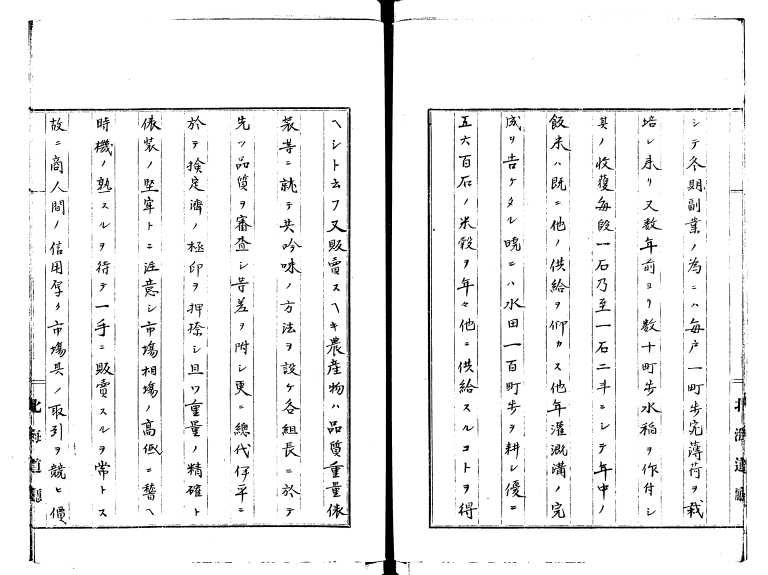 シテ冬期副業ノ為ニハ毎戸一町歩宛薄荷ヲ栽
培シ来リ又数年前ヨリ数十町歩水稲ヲ作付シ
其ノ收穫毎段一石乃至一石二斗ニシテ年中ノ
飯米ハ既ニ他ノ供給ヲ仰カス他年灌漑溝ノ完
成ヲ告ケタル暁ニハ水田一百町歩ヲ耕シ優ニ
五六百石ノ米穀ヲ年々他ニ供給スルコトヲ得
ヘシト云フ又販賣スヘキ農産物ハ品質重量俵
装等ニ就テ共吟味ノ方法ヲ設ケ各組長ニ於テ
先ツ品質ヲ審査シ等差ヲ附シ更ニ總代仔平ニ
於テ撿定濟ノ極印ヲ押捺シ且ツ重量ノ精確ト
俵装ノ堅牢トニ注意シ市塲相塲ノ高低ニ
時機ノ熟スルヲ待テ一手ニ販賣スルヲ常トス
故ニ商人間ノ信用厚ク市塲其ノ取引ヲ競ヒ價
北海道廳
北海道廳